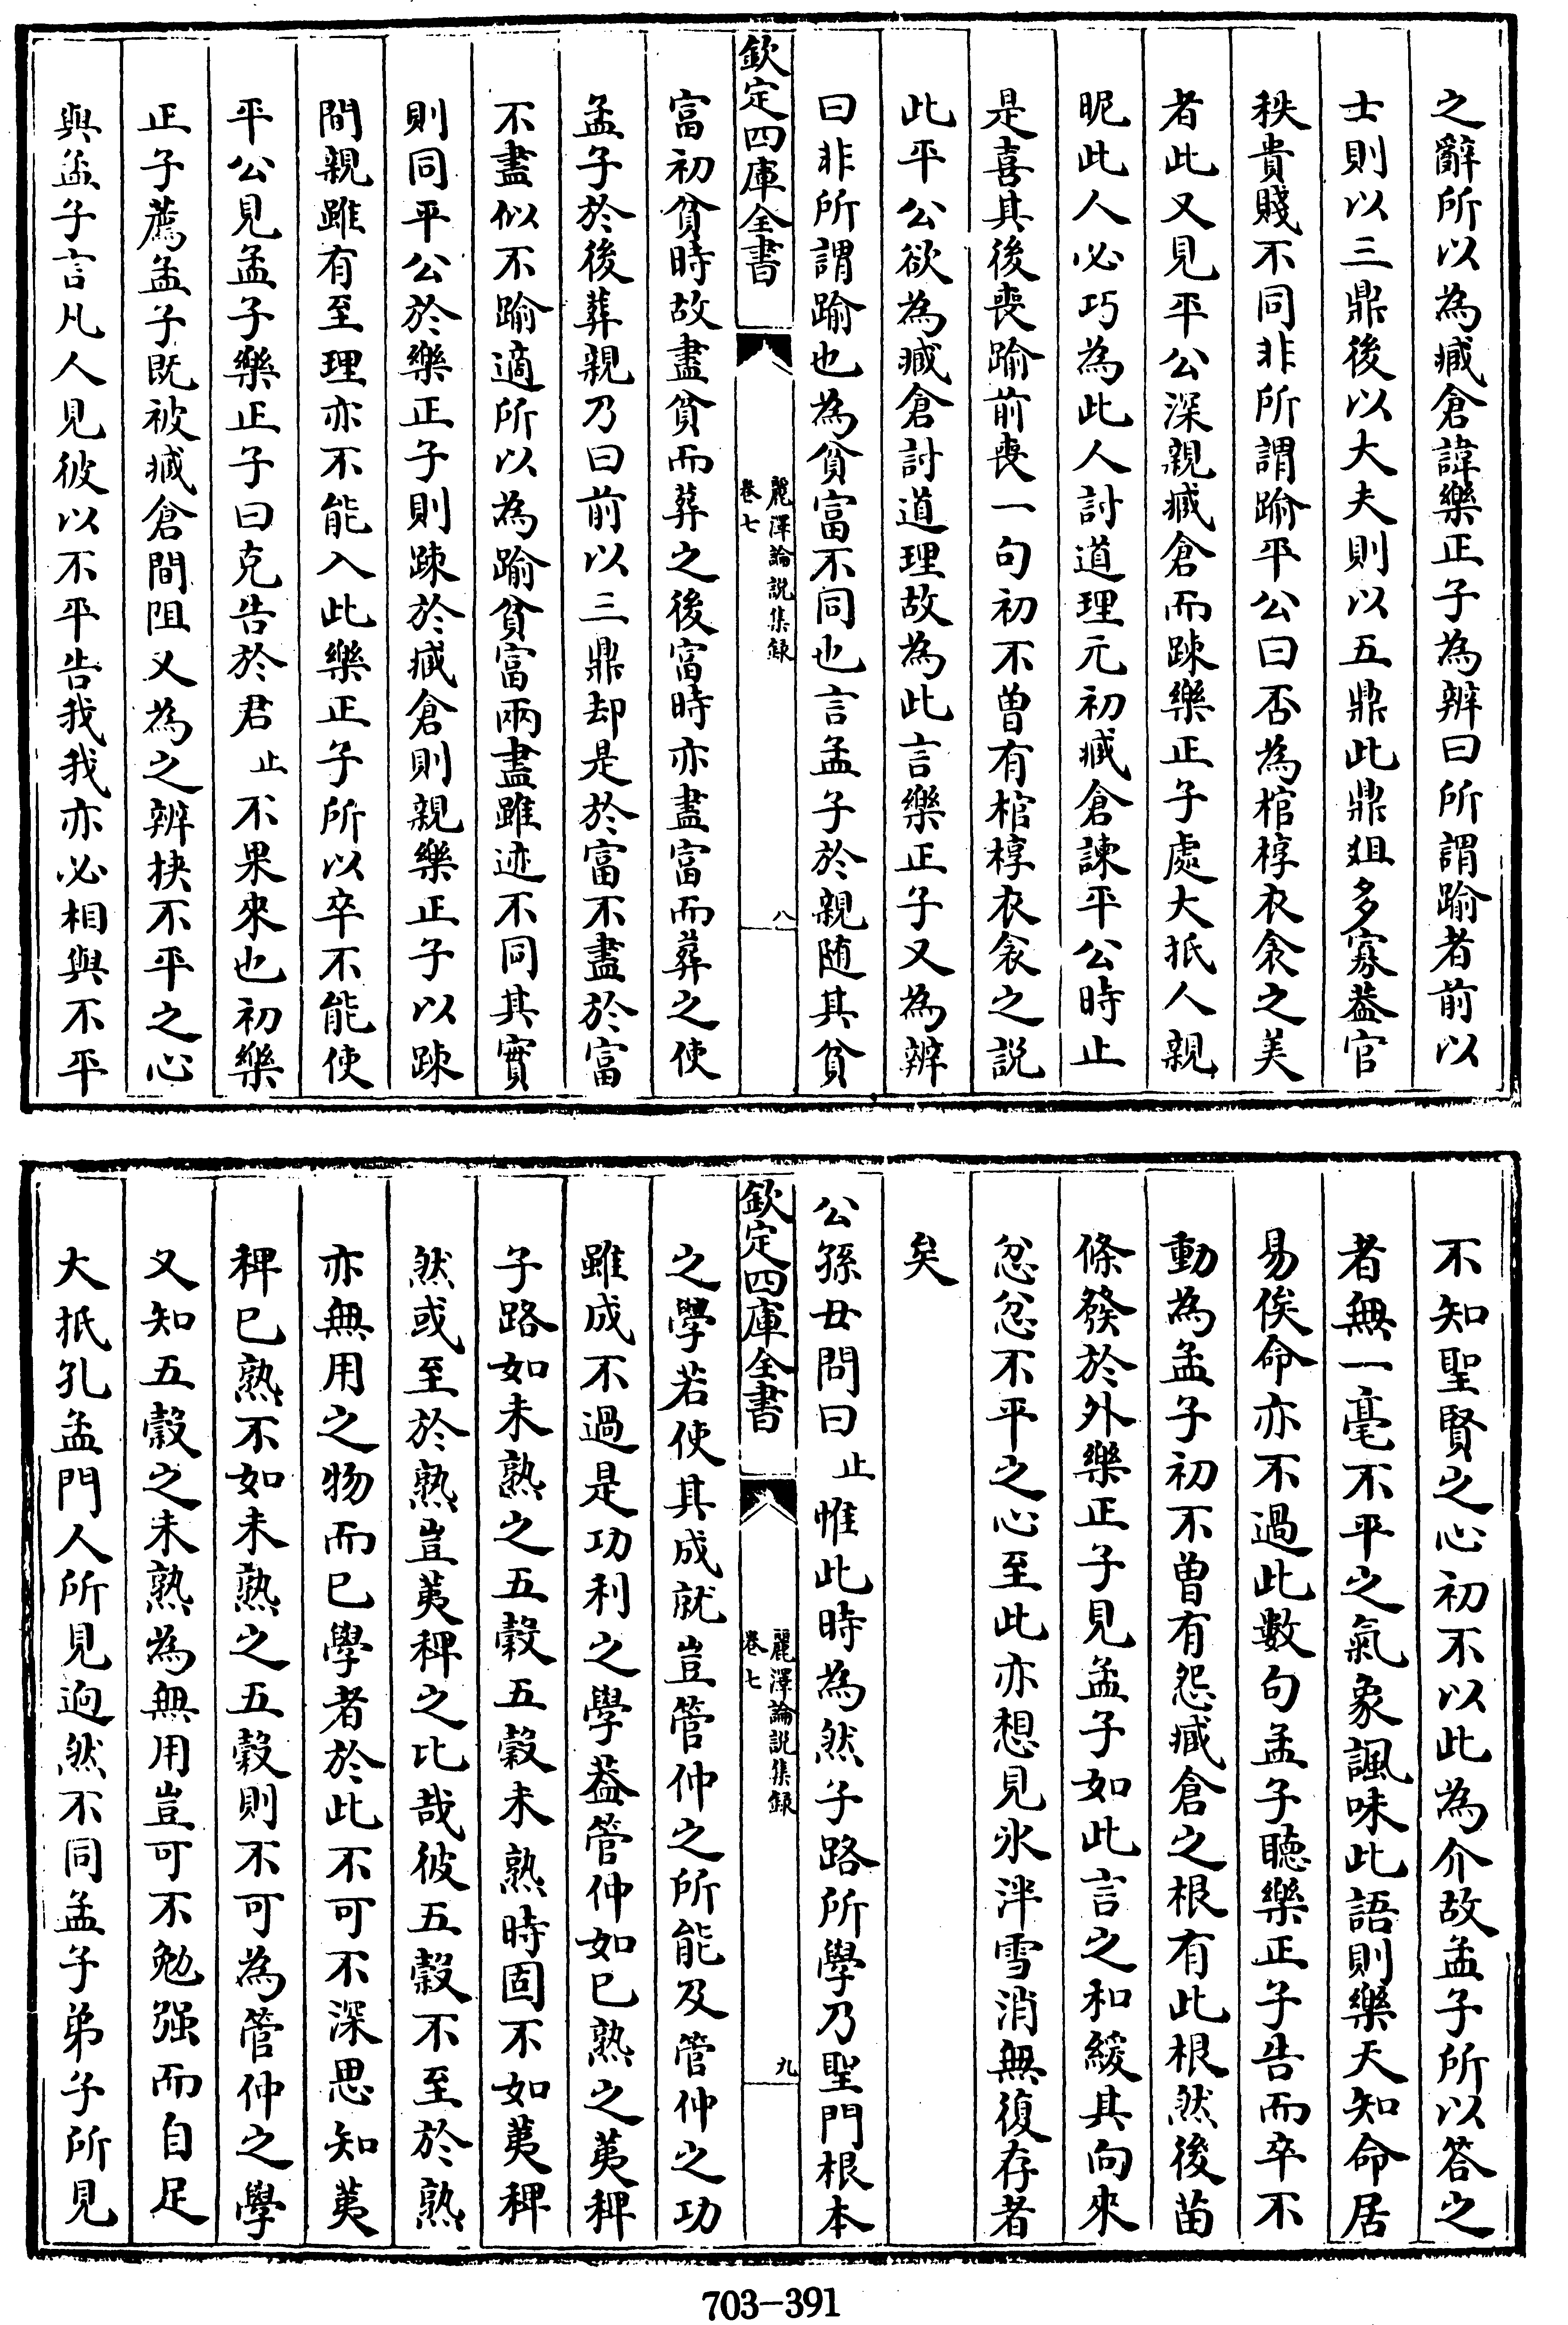 之辭所以為臧倉諱樂正子為辨曰所謂踰者前以
士則以三鼎後以大夫則以五鼎此鼎俎多寡葢官
秩貴賤不同非所謂踰平公曰否為棺椁衣衾之美
者此又見平公深親臧倉而踈樂正子處大抵人親
昵此人必巧為此人討道理元初臧倉諫平公時止
是喜其後喪踰前喪一句初不曽有棺椁衣衾之説
此平公欲為臧倉討道理故為此言樂正子又為辨
曰非所謂踰也為貧富不同也言孟子於親随其貧
欽定四庫全書
麗澤論説集録
卷七
八
富初貧時故盡貧而葬之後富時亦盡富而葬之使
孟子於後葬親乃曰前以三鼎却是於富不盡於富
不盡似不踰適所以為踰貧富兩盡雖迹不同其實
則同平公於樂正子則踈於臧倉則親樂正子以踈
間親雖有至理亦不能入此樂正子所以卒不能使
平公見孟子樂正子曰克告於君止不果來也初樂
正子薦孟子既被臧倉間阻又為之辨抉不平之心
與孟子言凡人見彼以不平告我我亦必相與不平
不知聖賢之心初不以此為介故孟子所以答之
者無一毫不平之氣象諷味此語則樂天知命居
易俟命亦不過此數句孟子聽樂正子告而卒不
動為孟子初不曽有怨臧倉之根有此根然後苗
條發於外樂正子見孟子如此言之和緩其向來
忿忿不平之心至此亦想見氷泮雪消無復存者
矣
公孫丑問曰止惟此時為然子路所學乃聖門根本
欽定四庫全書
麗澤論説集録
卷七
九
之學若使其成就豈管仲之所能及管仲之功
雖成不過是功利之學葢管仲如已熟之荑稗
子路如未熟之五穀五穀未熟時固不如荑稗
然或至於熟豈荑稗之比哉彼五穀不至於熟
亦無用之物而已學者於此不可不深思知荑
稗已熟不如未熟之五穀則不可為管仲之學
又知五穀之未熟為無用豈可不勉强而自足
大抵孔孟門人所見逈然不同孟子弟子所見
703-391